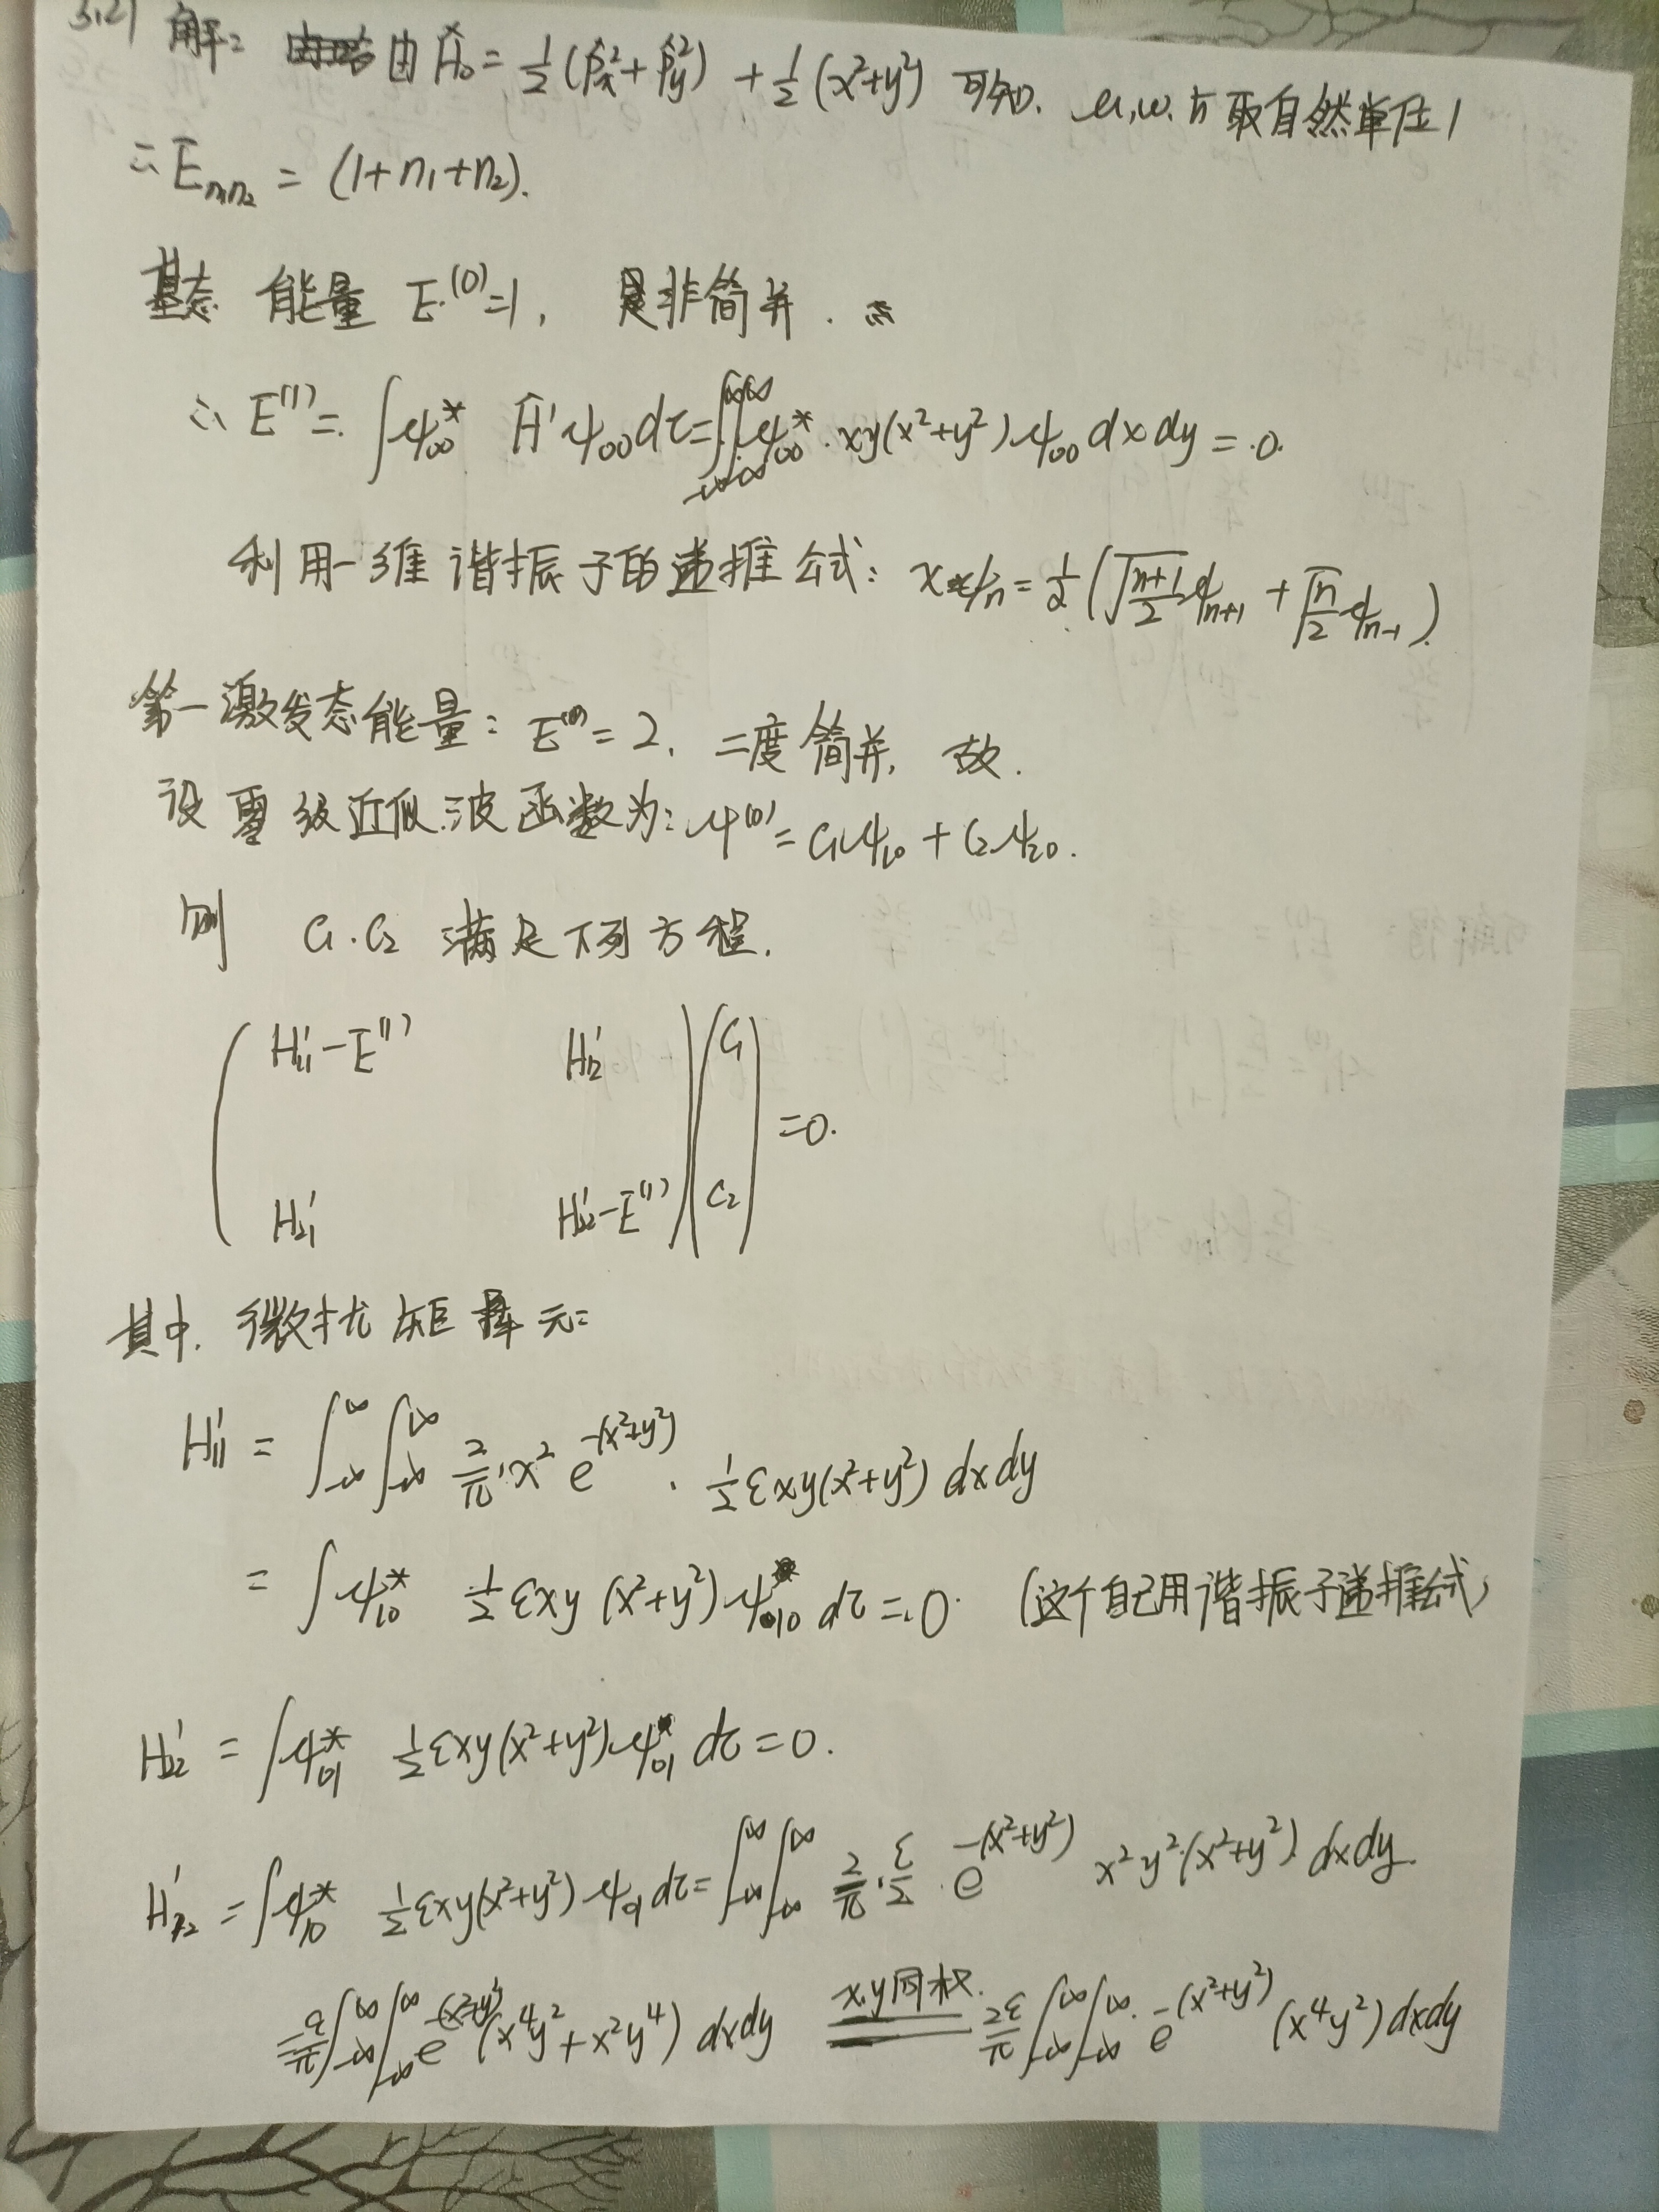 3.21 解: 由 Ĥ₀ = ½(p̂ₓ²+p̂ᵧ²) + ½(x²+y²) 可知. μ,ω,ħ取自然单位1
∴ E_{n₁n₂} = (1+n₁+n₂).
基态 能量 E^{(0)}=1, 是非简并.
∴ E^{(1)} = ∫ψ₀₀* Ĥ'ψ₀₀dτ = ∫_{-∞}^{∞}∫_{-∞}^{∞} ψ₀₀*·xy(x²+y²)ψ₀₀ dxdy = 0.
利用一维谐振子的递推公式: xψₙ = ½(√((n+1)/2) ψₙ₊₁ + √(n/2) ψₙ₋₁)
第一激发态能量: E^{(0)} = 2, 二度简并, 故.
设零级近似波函数为: ψ^{(0)} = C₁ψ₁₀ + C₂ψ₂₀.
则 C₁.C₂ 满足下列方程.
( H'₁₁-E^{(1)} H'₁₂ ) ( C₁ )
=0.
( H'₂₁ H'₂₂-E^{(1)} ) ( C₂ )
其中. 微扰矩阵元:
H'₁₁ = ∫_{-∞}^{∞}∫_{-∞}^{∞} 2/π·x² e^{-(x²+y²)} · ½εxy(x²+y²) dxdy
= ∫ψ₁₀* ½εxy(x²+y²)ψ₁₀ dτ = 0. (这个自己用谐振子递推公式)
H'₂₂ = ∫ψ₀₁* ½εxy(x²+y²)ψ₀₁ dτ = 0.
H'₁₂ = ∫ψ₁₀* ½εxy(x²+y²)ψ₀₁dτ = ∫_{-∞}^{∞}∫_{-∞}^{∞} 2/π·ε/2·e^{-(x²+y²)} x²y²(x²+y²) dxdy.
= ε/π∫_{-∞}^{∞}∫_{-∞}^{∞} e^{-(x²+y²)}(x⁴y²+x²y⁴) dxdy x,y同权. 2ε/π∫_{-∞}^{∞}∫_{-∞}^{∞} e^{-(x²+y²)}(x⁴y²)dxdy